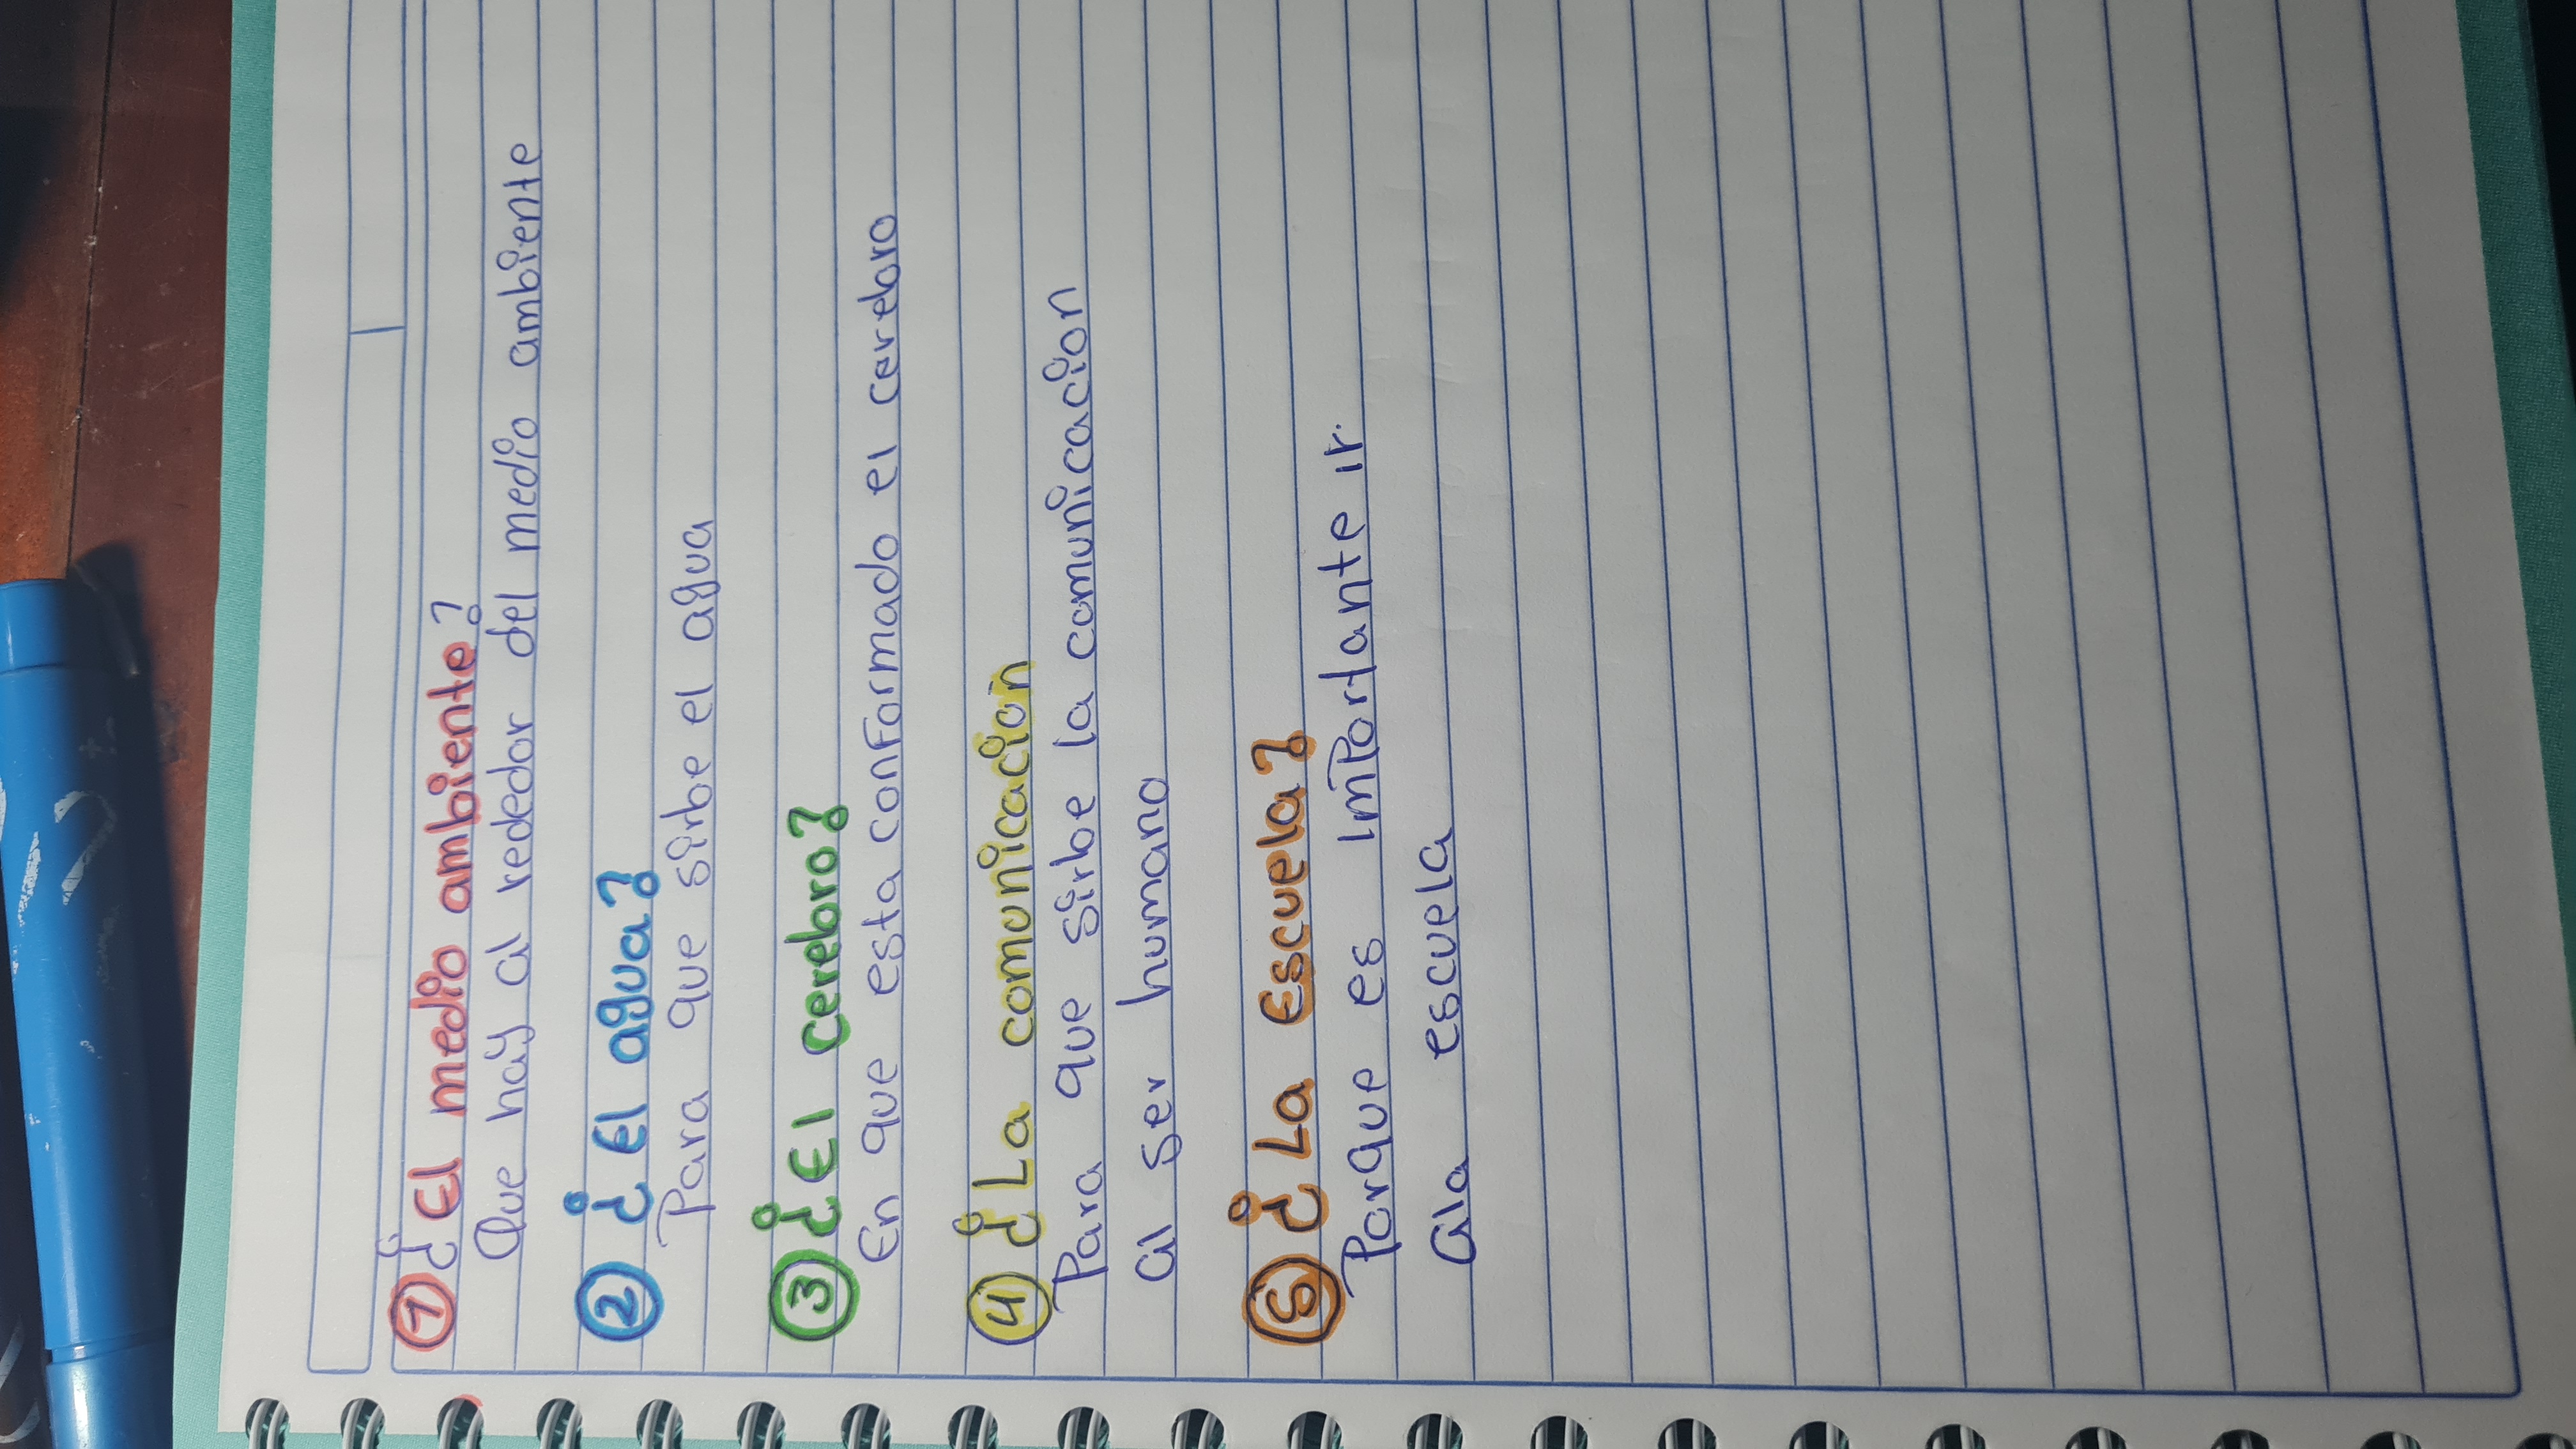 ① ¿El medio ambiente?
Que hay al rededor del medio ambiente
② ¿El agua?
Para que sirbe el agua
③ ¿El cerebro?
En que esta conformado el cerebro
④ ¿La comunicacion
Para que sirbe la comunicacion
al ser humano
⑤ ¿La escuela?
Porque es importante ir.
ala escuela